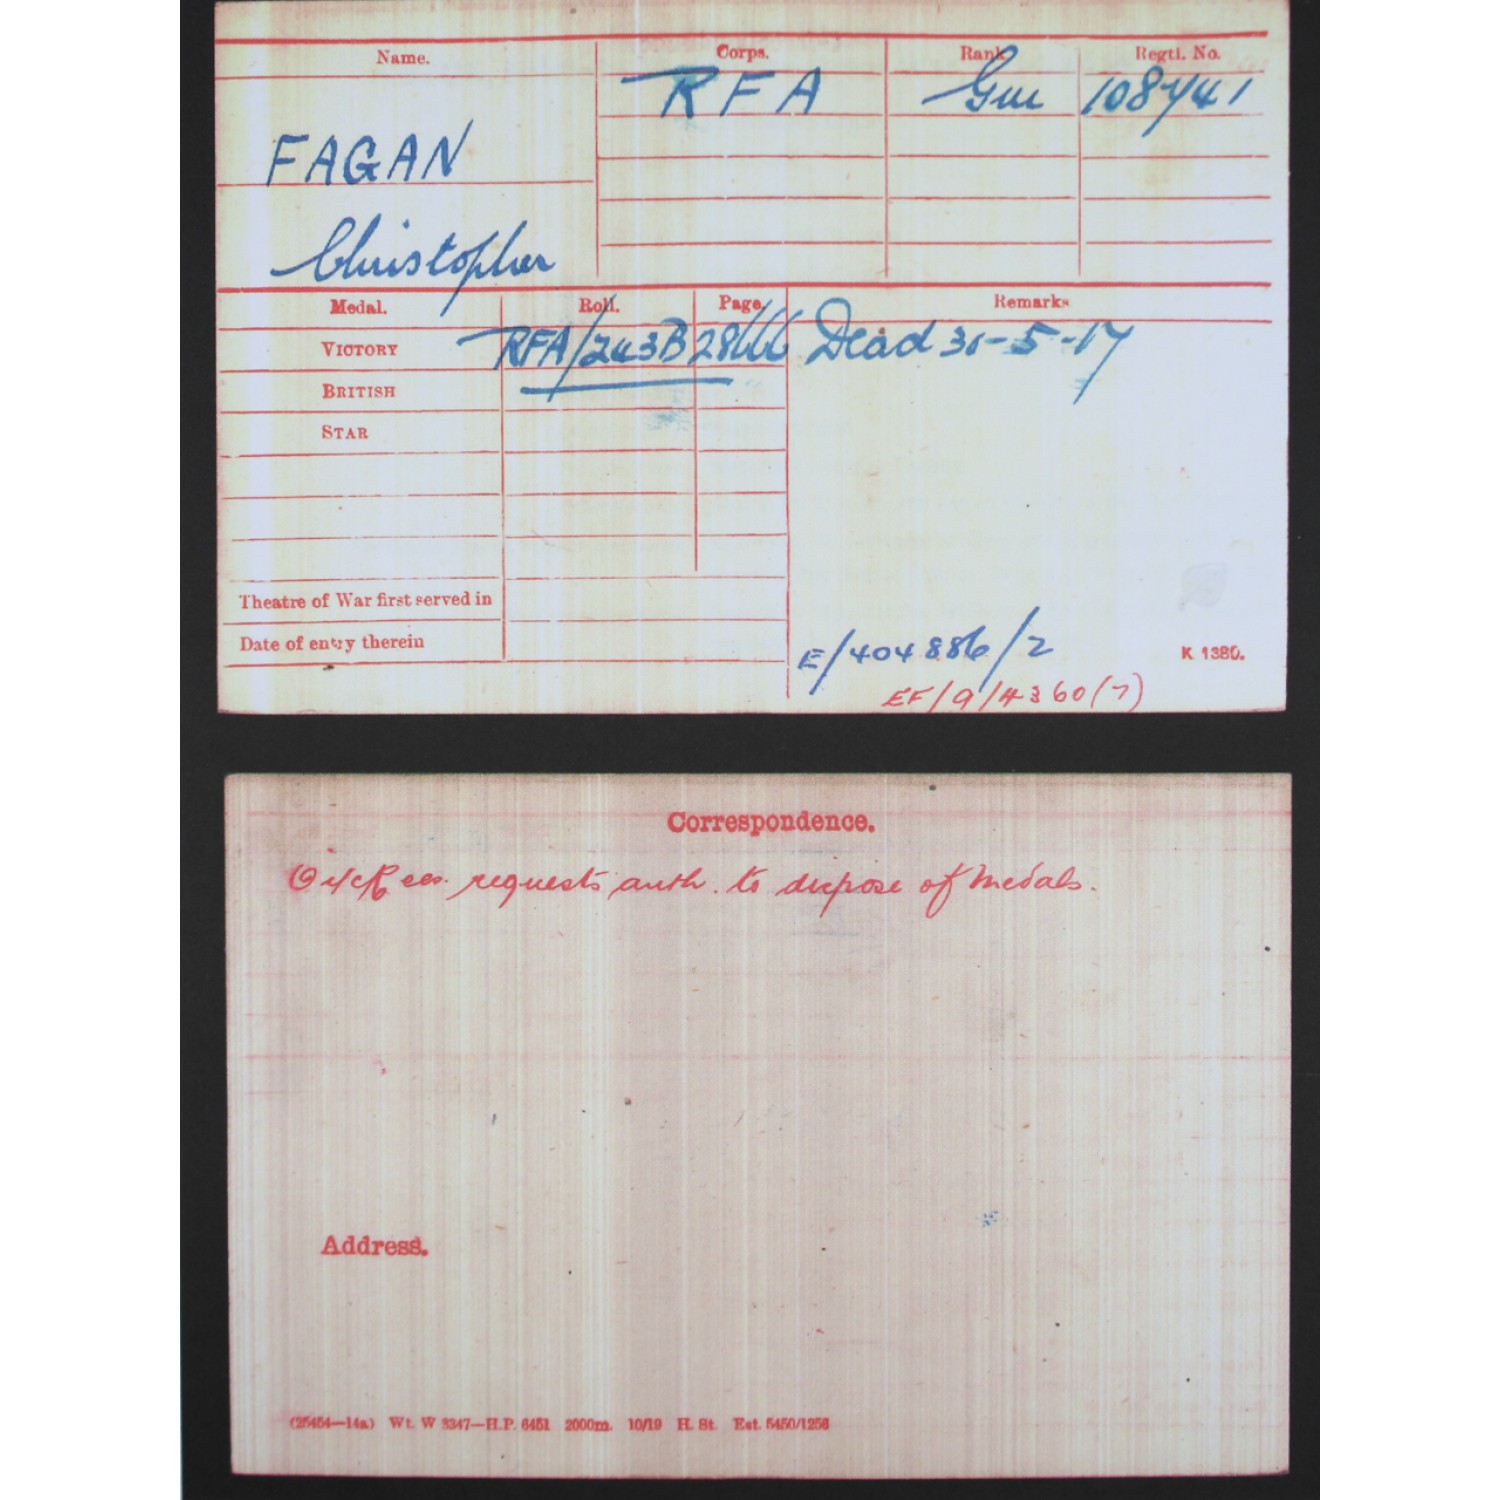 Name. Corps. Rank Regtl. No.
RFA Gnr 108741
FAGAN
Christopher
Medal. Roll. Page. Remarks
VICTORY RFA/243B 28666 Dead 31-5-17
BRITISH
STAR
Theatre of War first served in
Date of entry therein
E/404886/2
K 1380.
EF/9/4360(7)
Correspondence.
O i/c Rees. requests auth. to dispose of Medals.
Address.
(25454—14a) Wt. W 3347—H.P. 6451 2000m. 10/19 H. St. Est. 5450/1256